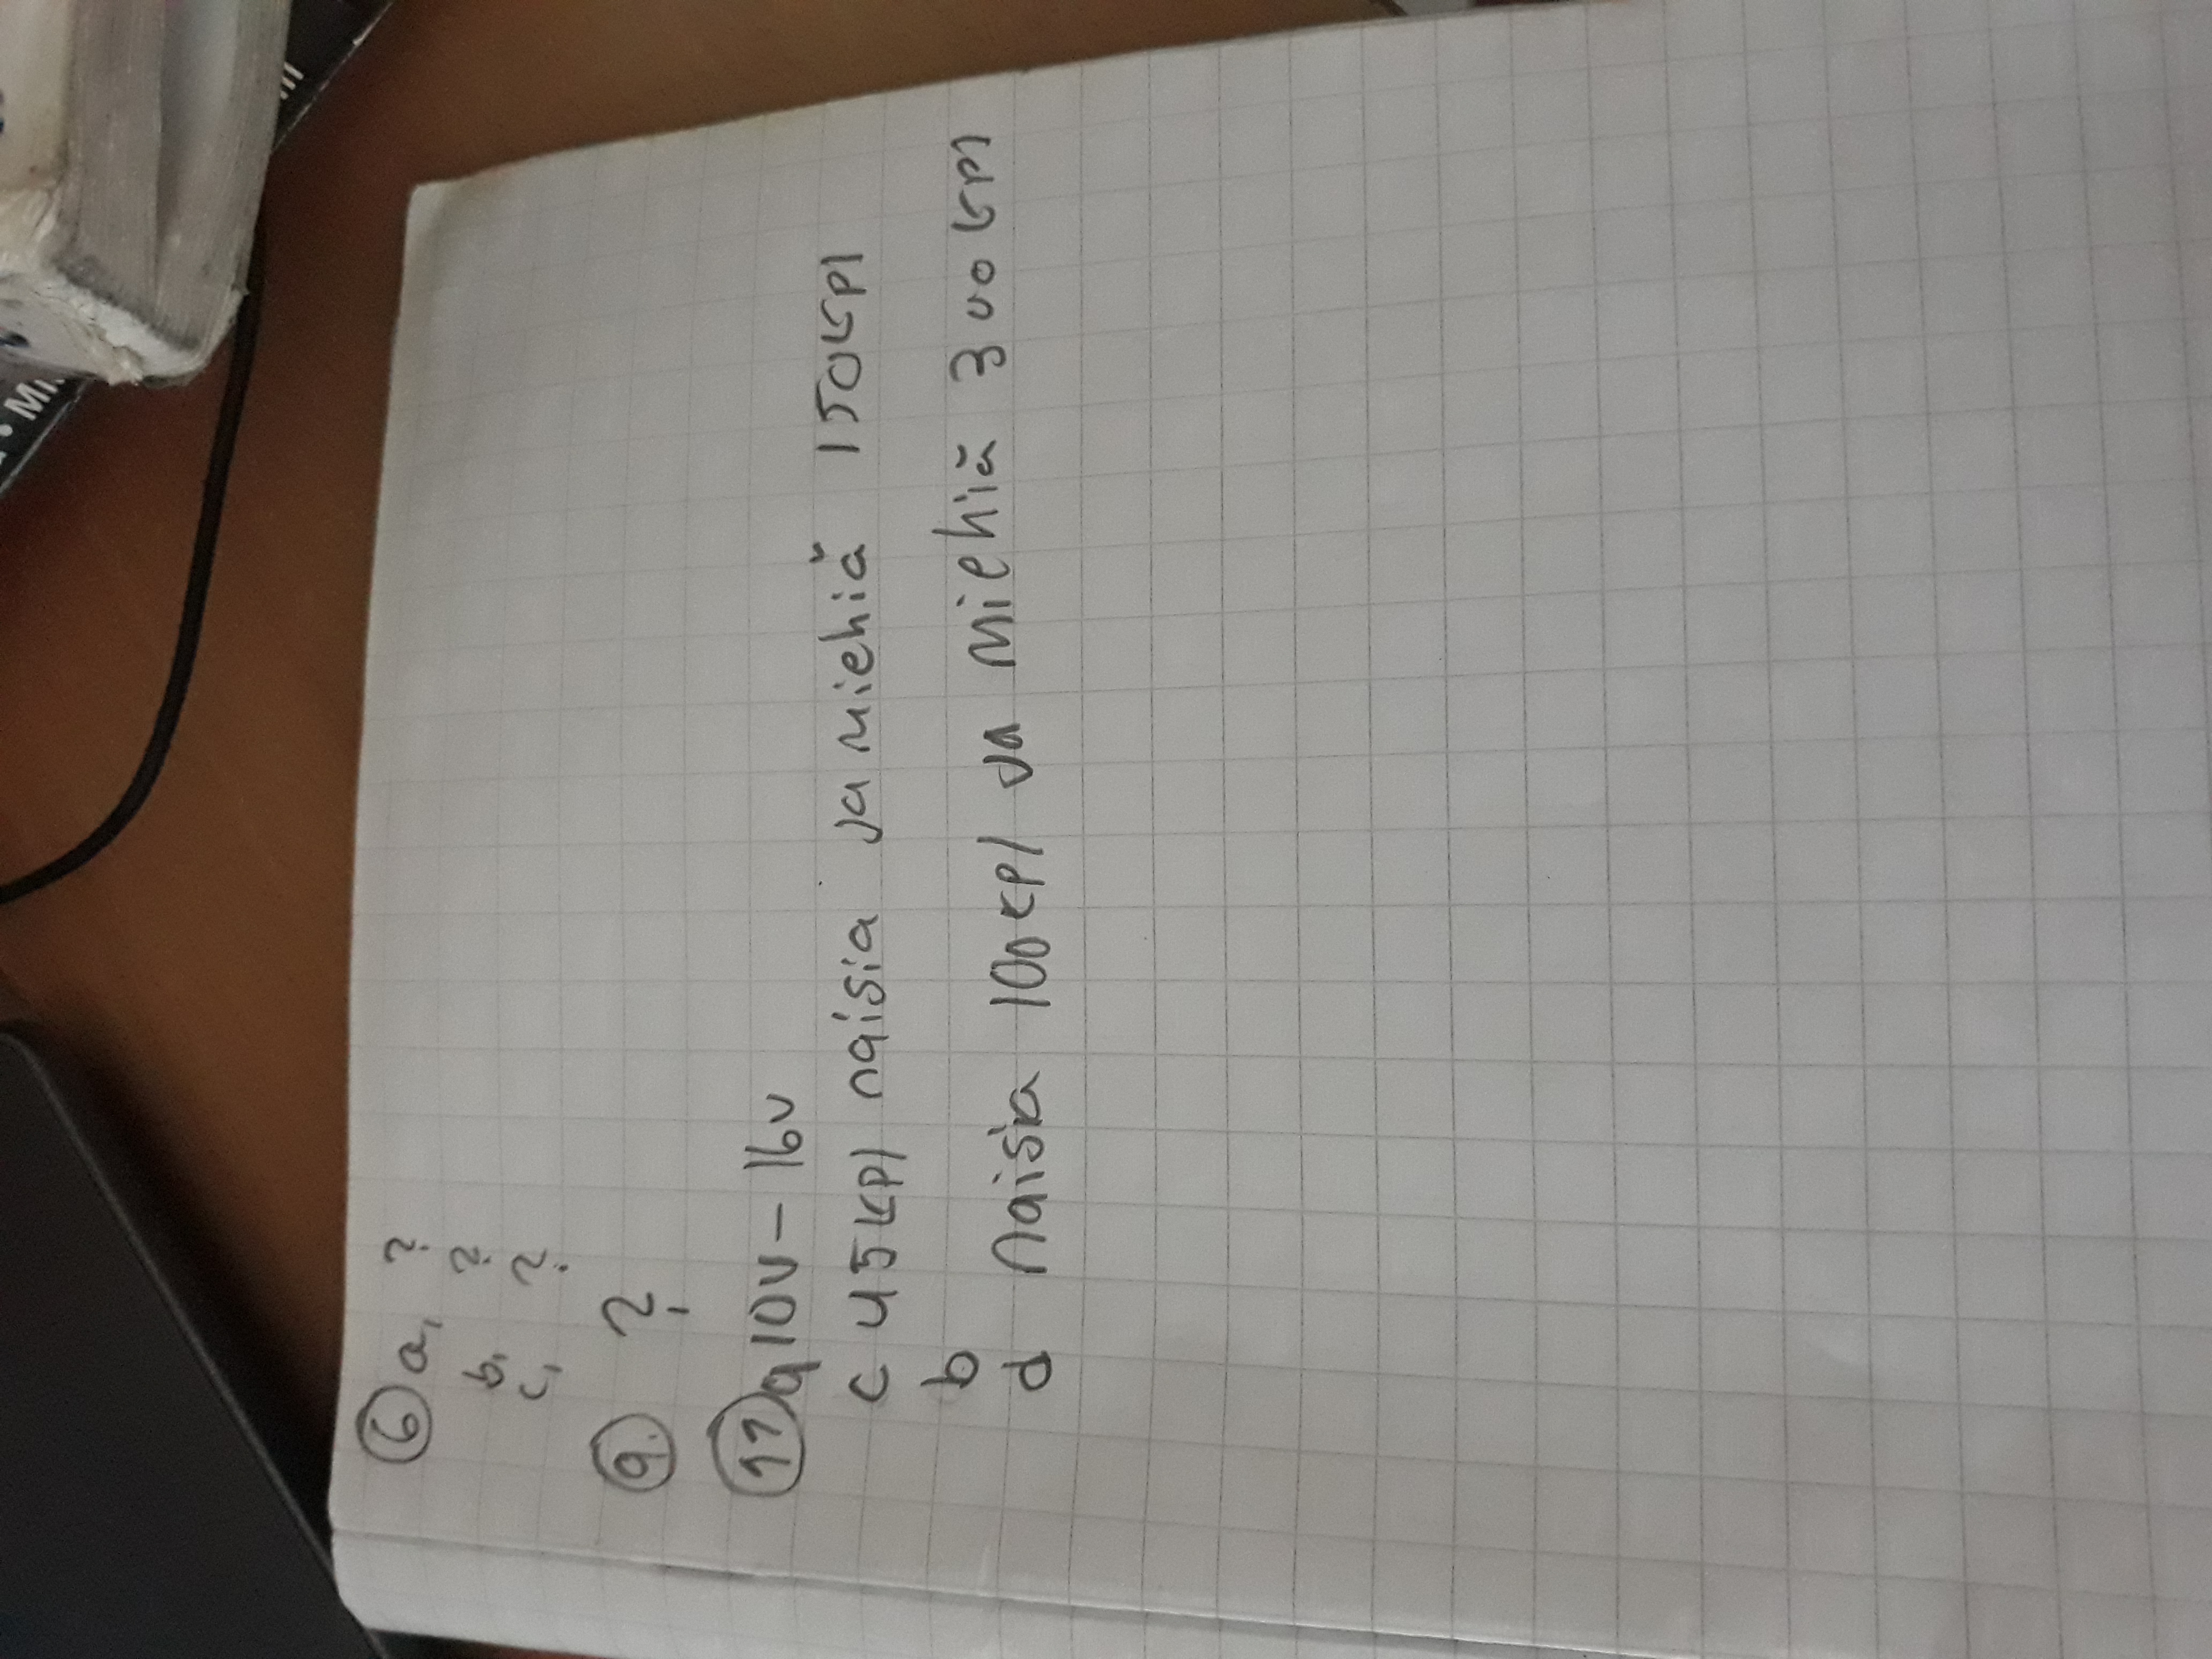 6 a, ?
b, ?
c, ?
9. ?
11 a 10v - 16v
c 45kpl naisia ja miehiä 150kpl
b
d naisia 100kpl ja miehiä 300kpl